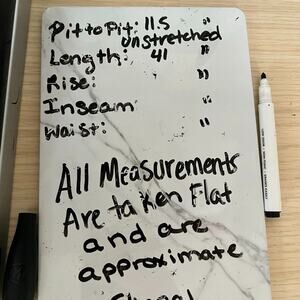 Pit to Pit: 11.5 "
unstretched
Length: 41 "
Rise: "
Inseam "
Waist: "
All Measurements
Are taken Flat
and are
approximate